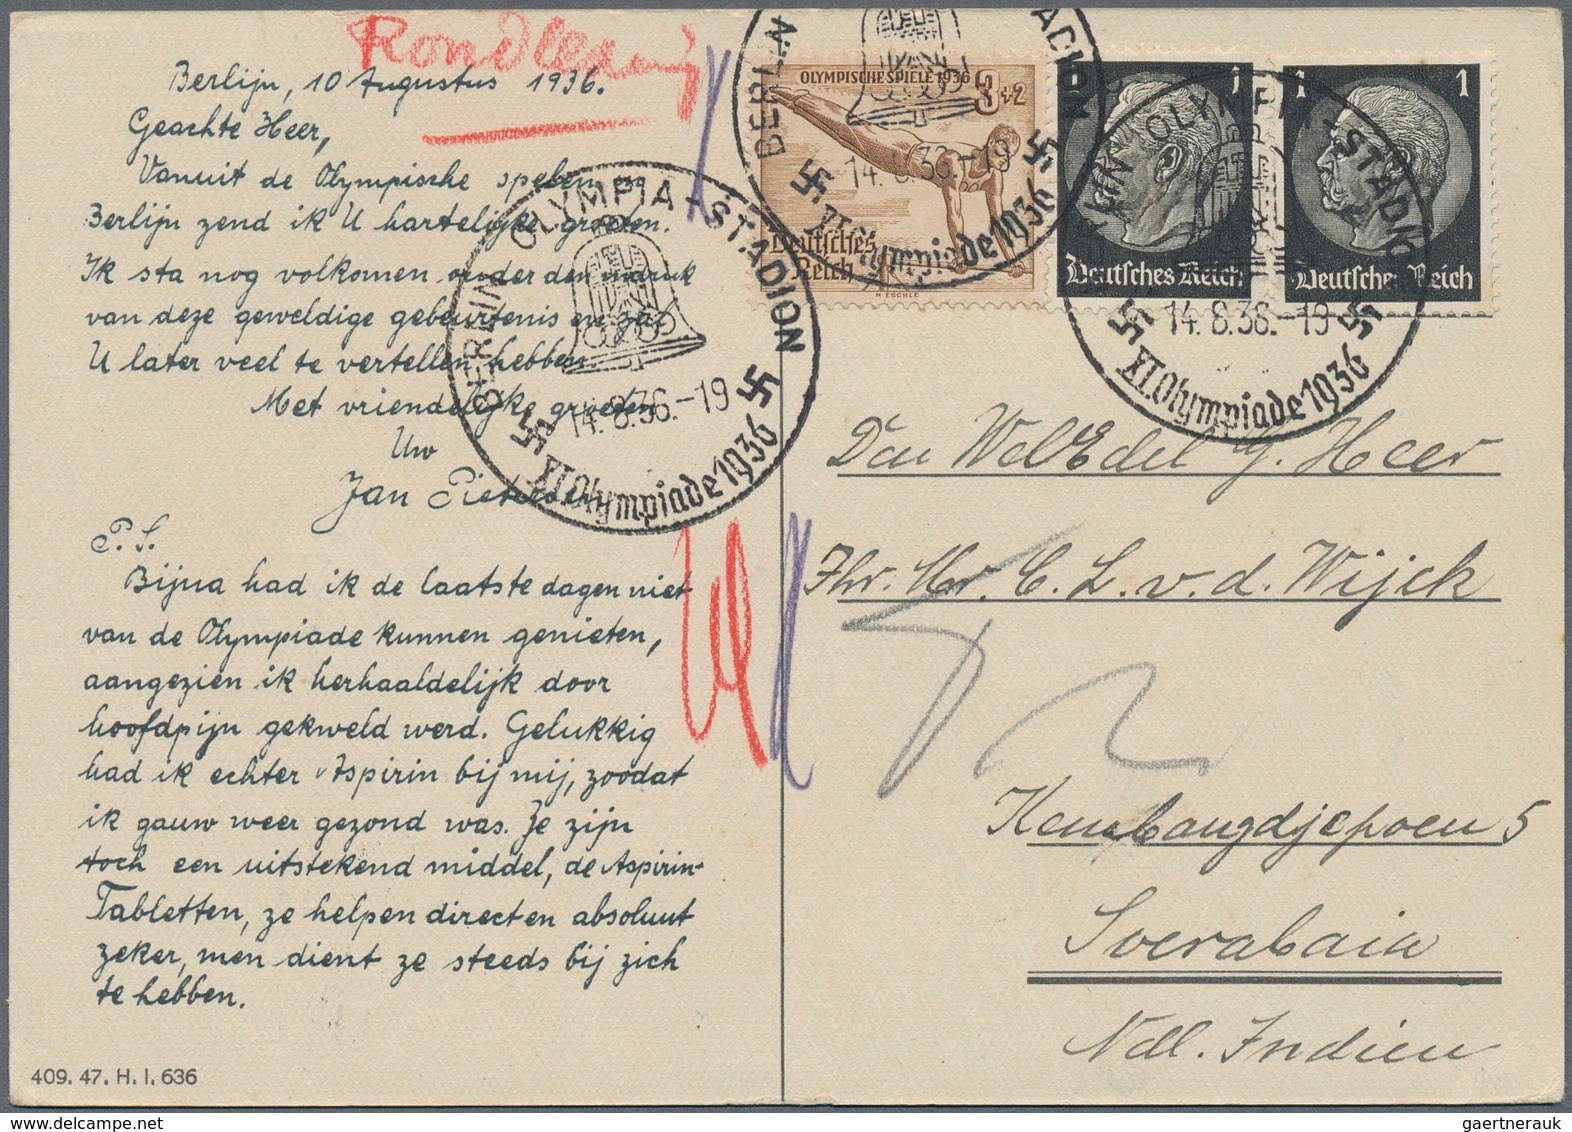 Rondleung
Berlijn, 10 Augustus 1936.
Geachte Heer,
Vanuit de Olympische spelen
Berlijn zend ik U hartelijke groeten.
Ik sta nog volkomen onder den indruk
van deze geweldige gebeurtenis en zal
U later veel te vertellen hebben.
Met vriendelijke groeten
Uw
Jan Pietersen
P.S.
Bijna had ik de laatste dagen niet
van de Olympiade kunnen genieten,
aangezien ik herhaaldelijk door
hoofdpijn gekweld werd. Gelukkig
had ik echter Aspirin bij mij, zoodat
ik gauw weer gezond was. Je zijn
toch een uitstekend middel, de Aspirin-
Tabletten, ze helpen direct en absoluut
zeker, men dient ze steeds bij zich
te hebben.
409. 47. H. I. 636
BERLIN OLYMPIA-STADION
14.8.36.-19
XI.Olympiade 1936
OLYMPISCHE SPIELE 1936
3+2
Deutsches
Reich
M. ESCHLE
BERLIN STADION
14.8.36.-19
XI.Olympiade 1936
1
Deutsches Reich
1 1
Deutsches Reich
BERLIN OLYMPIA-STADION
14.8.36.-19
XI.Olympiade 1936
Den WelEdel g. Heer
Jhr. Mr. C. L. v. d. Wijck
Kembangdjepoen 5
Soerabaia
Ndl. Indien
gaertnerauk